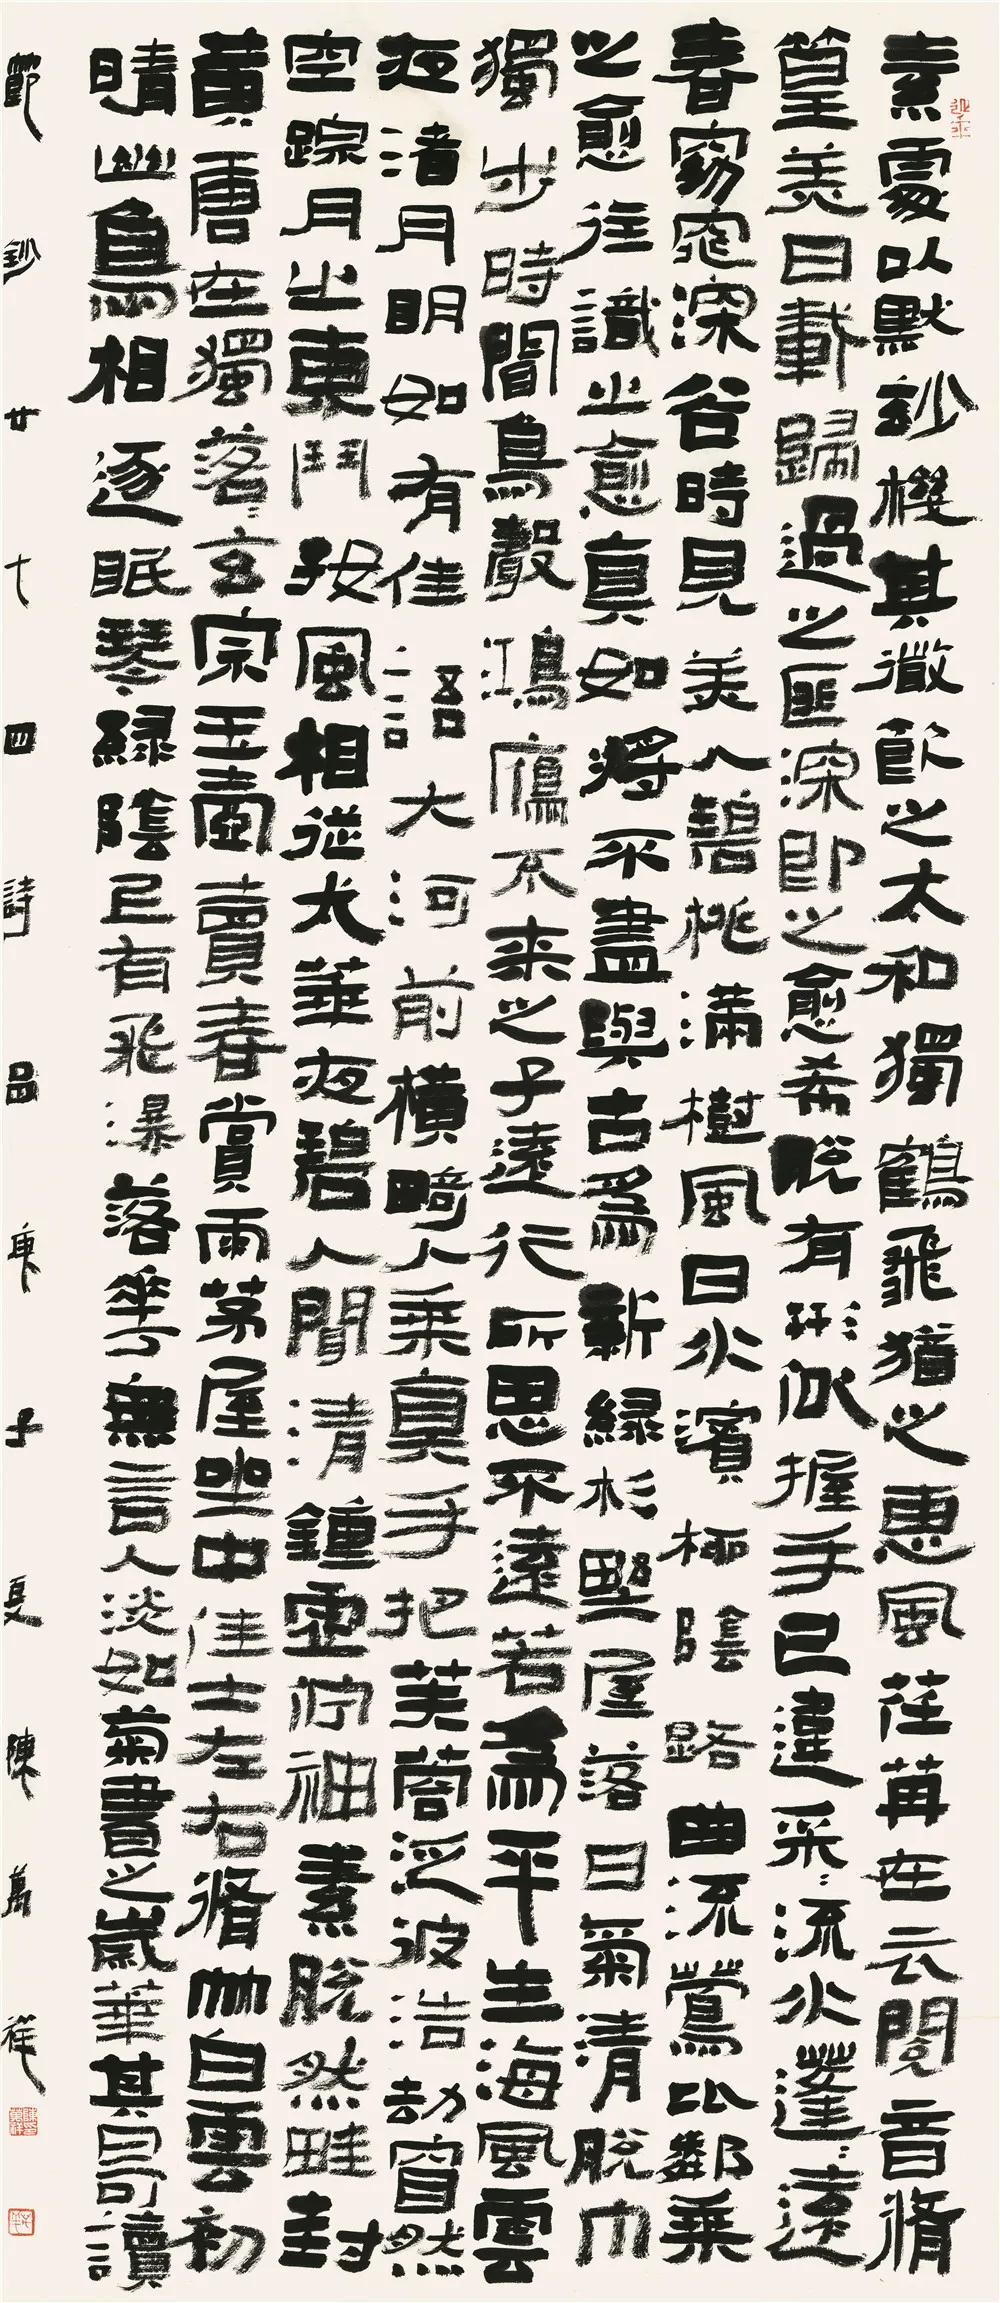 素處以默妙機其微飲之太和獨鶴飛猶之惠風荏苒在衣閱音脩
篁美曰載歸過之匪深即之愈希脫有形似握手已違采采流水蓬蓬遠
春窈窕深谷時見美人碧桃滿樹風日水濱柳陰路曲流鶯比鄰乘
之愈往識之愈真如將不盡與古為新綠杉野屋落日氣清脫巾
獨步時聞鳥聲鴻鴈不來之子遠行所思不遠若為平生海風雲
夜渚月明如有佳語大河前橫畸人乘真手把芙蓉泛波浩劫窅然
空踪月出東鬥好風相從太華夜碧人聞清鐘虛佇神素脫然畦封
黃唐在獨落落玄宗玉壺賣春賞雨茅屋坐中佳士左右脩竹白雲初
晴幽鳥相逐眠琴綠陰上有飛瀑落花無言人淡如菊書之歲華其曰可讀
節鈔廿十四詩品庚子夏陳萬祥